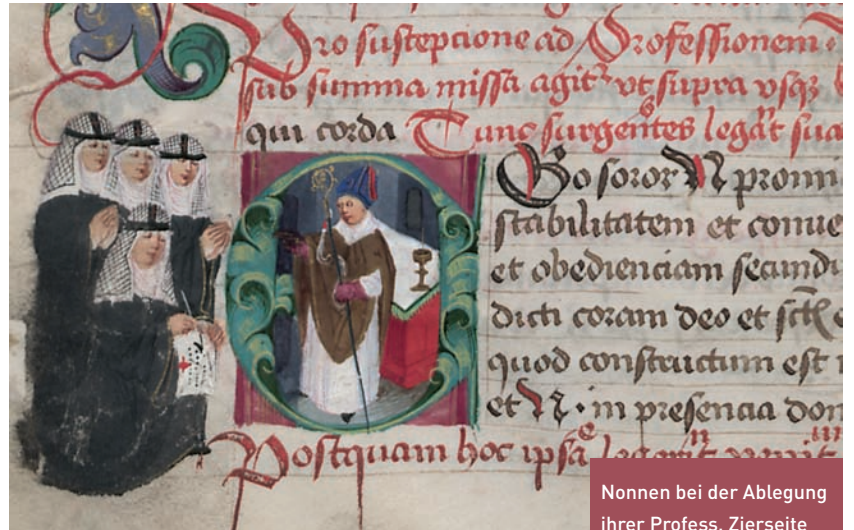 Pro suscepcione ad Professionem ·
sub summa missa agitꝛ vt supra vsqꝫ
qui corda Tunc surgentes legāt sua
EGo soror N promi
stabilitatem et conue
et obedienciam secundu
dicti coram deo et
quod constructum est
et N · in presencia don
Postquam hoc ipsa legerit
Nonnen bei der Ablegung
ihrer Profess. Zierseite